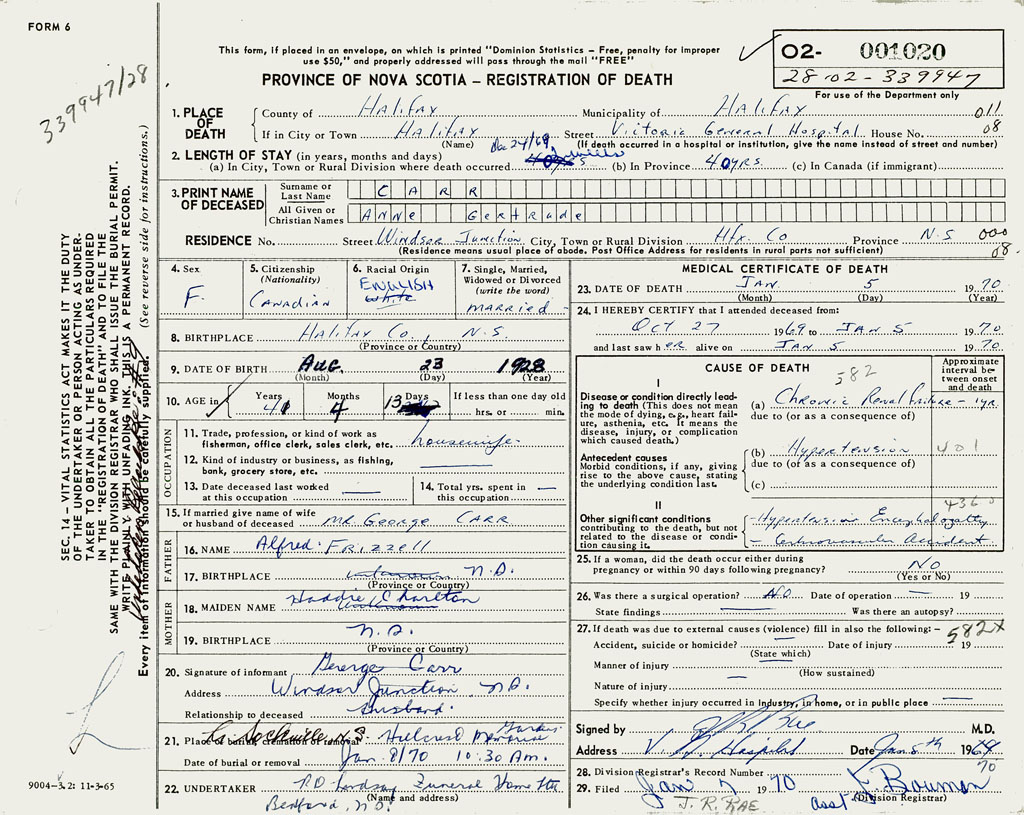 FORM 6
339947/28
This form, if placed in an envelope, on which is printed "Dominion Statistics – Free, penalty for improper
use $50," and properly addressed will pass through the mail "FREE"
PROVINCE OF NOVA SCOTIA – REGISTRATION OF DEATH
02- 001020
28-02-339947
For use of the Department only
SEC. 14 – VITAL STATISTICS ACT MAKES IT THE DUTY
OF THE UNDERTAKER OR PERSON ACTING AS UNDER-
TAKER TO OBTAIN ALL THE PARTICULARS REQUIRED
IN THE "REGISTRATION OF DEATH" AND TO FILE THE
SAME WITH THE DIVISION REGISTRAR WHO SHALL ISSUE THE BURIAL PERMIT.
WRITE PLAINLY, WITH UNFADING INK. THIS IS A PERMANENT RECORD.
Every item of information should be carefully supplied. (See reverse side for instructions.)
1. PLACE OF DEATH County of Halifax Municipality of Halifax 011
If in City or Town Halifax Street Victoria General Hospital House No. 08
(Name) (If death occurred in a hospital or institution, give the name instead of street and number)
2. LENGTH OF STAY (in years, months and days) Dec 24/69
(a) In City, Town or Rural Division where death occurred (b) In Province 40 yrs. (c) In Canada (if immigrant)
3. PRINT NAME OF DECEASED Surname or Last Name CARR
All Given or Christian Names ANNE Gertrude
RESIDENCE No. Street Windsor Junction City, Town or Rural Division Hfx. Co Province N.S 000
(Residence means usual place of abode. Post Office Address for residents in rural parts not sufficient) 08
4. Sex F.
5. Citizenship (Nationality) Canadian
6. Racial Origin ENGLISH White
7. Single, Married, Widowed or Divorced (write the word) married
8. BIRTHPLACE Halifax Co., N.S.
(Province or Country)
9. DATE OF BIRTH Aug. 23 1928
(Month) (Day) (Year)
10. AGE in Years 41 Months 4 Days 13 If less than one day old hrs. or min.
OCCUPATION
11. Trade, profession, or kind of work as fisherman, office clerk, sales clerk, etc. housewife
12. Kind of industry or business, as fishing, bank, grocery store, etc.
13. Date deceased last worked at this occupation
14. Total yrs. spent in this occupation
15. If married give name of wife or husband of deceased Mr. George CARR
FATHER
16. NAME Alfred Frizzell
17. BIRTHPLACE N.S.
(Province or Country)
MOTHER
18. MAIDEN NAME Charlton
19. BIRTHPLACE N.S.
(Province or Country)
20. Signature of informant George Carr
Address Windsor Junction, N.S.
Relationship to deceased Husband.
21. Place of burial cremation or removal Lr. Sackville N.S. Hillcrest Memorial
Date of burial or removal Jan. 8/70 10:30 Am.
22. UNDERTAKER Lindsay Funeral Home
(Name and address)
Bedford, N.S.
MEDICAL CERTIFICATE OF DEATH
23. DATE OF DEATH JAN. 5 1970
(Month) (Day) (Year)
24. I HEREBY CERTIFY that I attended deceased from:
OCT 27 1969 to JAN 5 1970
and last saw her alive on JAN 5 1970
CAUSE OF DEATH 582
Approximate interval between onset and death
I
Disease or condition directly leading to death (This does not mean the mode of dying, e.g., heart failure, asthenia, etc. It means the disease, injury, or complication which caused death.)
(a) Chronic Renal Failure – 1 yr.
due to (or as a consequence of)
Antecedent causes
Morbid conditions, if any, giving rise to the above cause, stating the underlying condition last.
(b) Hypertension 401
due to (or as a consequence of)
(c)
II 436
Other significant conditions contributing to the death, but not related to the disease or condition causing it.
- Hypertension Encephalopathy
- Cerebrovascular Accident
25. If a woman, did the death occur either during pregnancy or within 90 days following pregnancy? NO
(Yes or No)
26. Was there a surgical operation? NO Date of operation 19
State findings Was there an autopsy?
27. If death was due to external causes (violence) fill in also the following: - 582X
Accident, suicide or homicide? Date of injury 19
(State which)
Manner of injury
(How sustained)
Nature of injury
Specify whether injury occurred in Industry, in home, or in public place
Signed by M.D.
Address V. G. Hospital Date Jan 8th 1969
70
28. Division Registrar's Record Number
29. Filed Jan 7 1970 asst. Bowman
(Division Registrar)
J. R. RAE
9004-3.2: 11-3-65